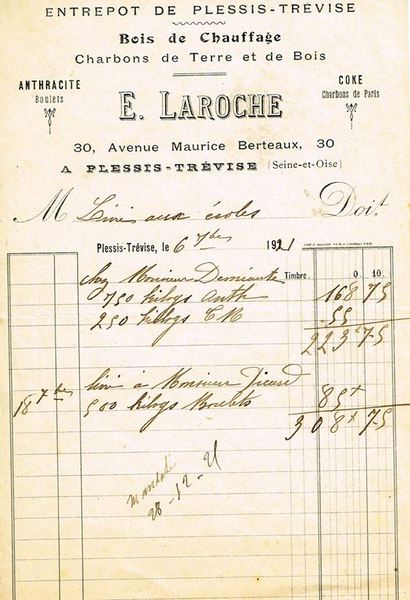 ENTREPOT DE PLESSIS-TRÉVISE
Bois de Chauffage
Charbons de Terre et de Bois
ANTHRACITE
Boulets
COKE
Charbons de Paris
E. LAROCHE
30, Avenue Maurice Berteaux, 30
A PLESSIS-TRÉVISE (Seine-et-Oise)
M Livré aux écoles Doit
Plessis-Trévise, le 6 7bre 1921
Timbre. 0 10
chez Monsieur
750 kilogs Anth 168 75
250 kilogs 55
223 75
18 7bre livré à Monsieur Picard
500 kilogs Boulets 85
308 75
28-12-21